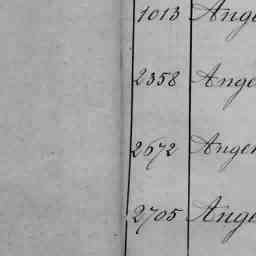 1013 Ange
2358 Ange
2672 Anger
2705 Ange